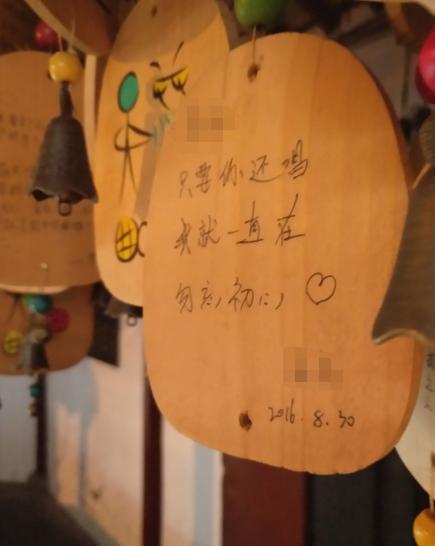 只要你还唱
我就一直在
勿忘初心♡
2016.8.30